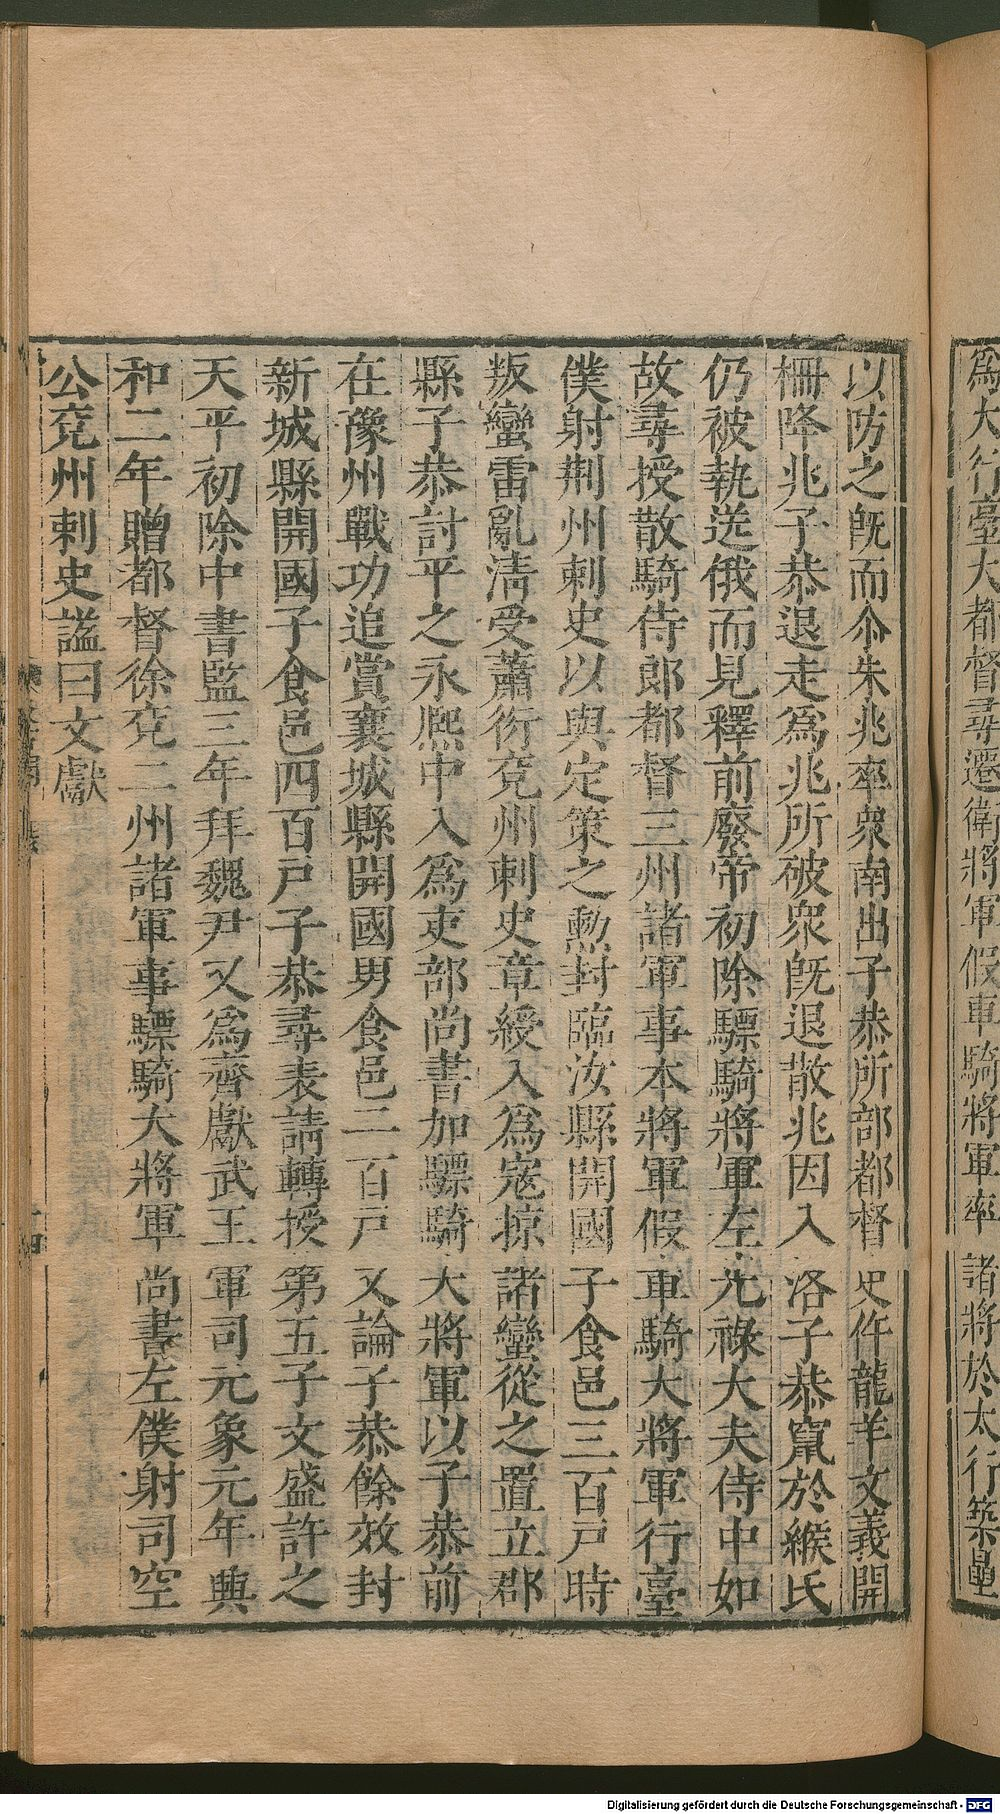 爲大行臺大都督尋遷衛將軍假車騎將軍率諸將於太行築壘
以防之旣而尒朱兆率衆南出子恭所部都督史仵龍羊文義開
柵降兆子恭退走爲兆所破衆旣退散兆因入洛子恭竄於緱氏
仍被執送俄而見釋前廢帝初除驃騎將軍左光祿大夫侍中如
故尋授散騎侍郎都督三州諸軍事本將軍假車騎大將軍行臺
僕射荆州刺史以與定策之勳封臨汝縣開國子食邑三百戸時
叛蠻雷亂淸受蕭衍兗州刺史章綬入爲寇掠諸蠻從之置立郡
縣子恭討平之永熈中入爲吏部尚書加驃騎大將軍以子恭前
在豫州戰功追賞襄城縣開國男食邑二百戸又論子恭餘效封
新城縣開國子食邑四百戸子恭尋表請轉授第五子文盛許之
天平初除中書監三年拜魏尹又爲齊獻武王軍司元象元年興
和二年贈都督徐兗二州諸軍事驃騎大將軍尚書左僕射司空
公兗州刺史謚曰文獻
Digitalisierung gefördert durch die Deutsche Forschungsgemeinschaft - DFG